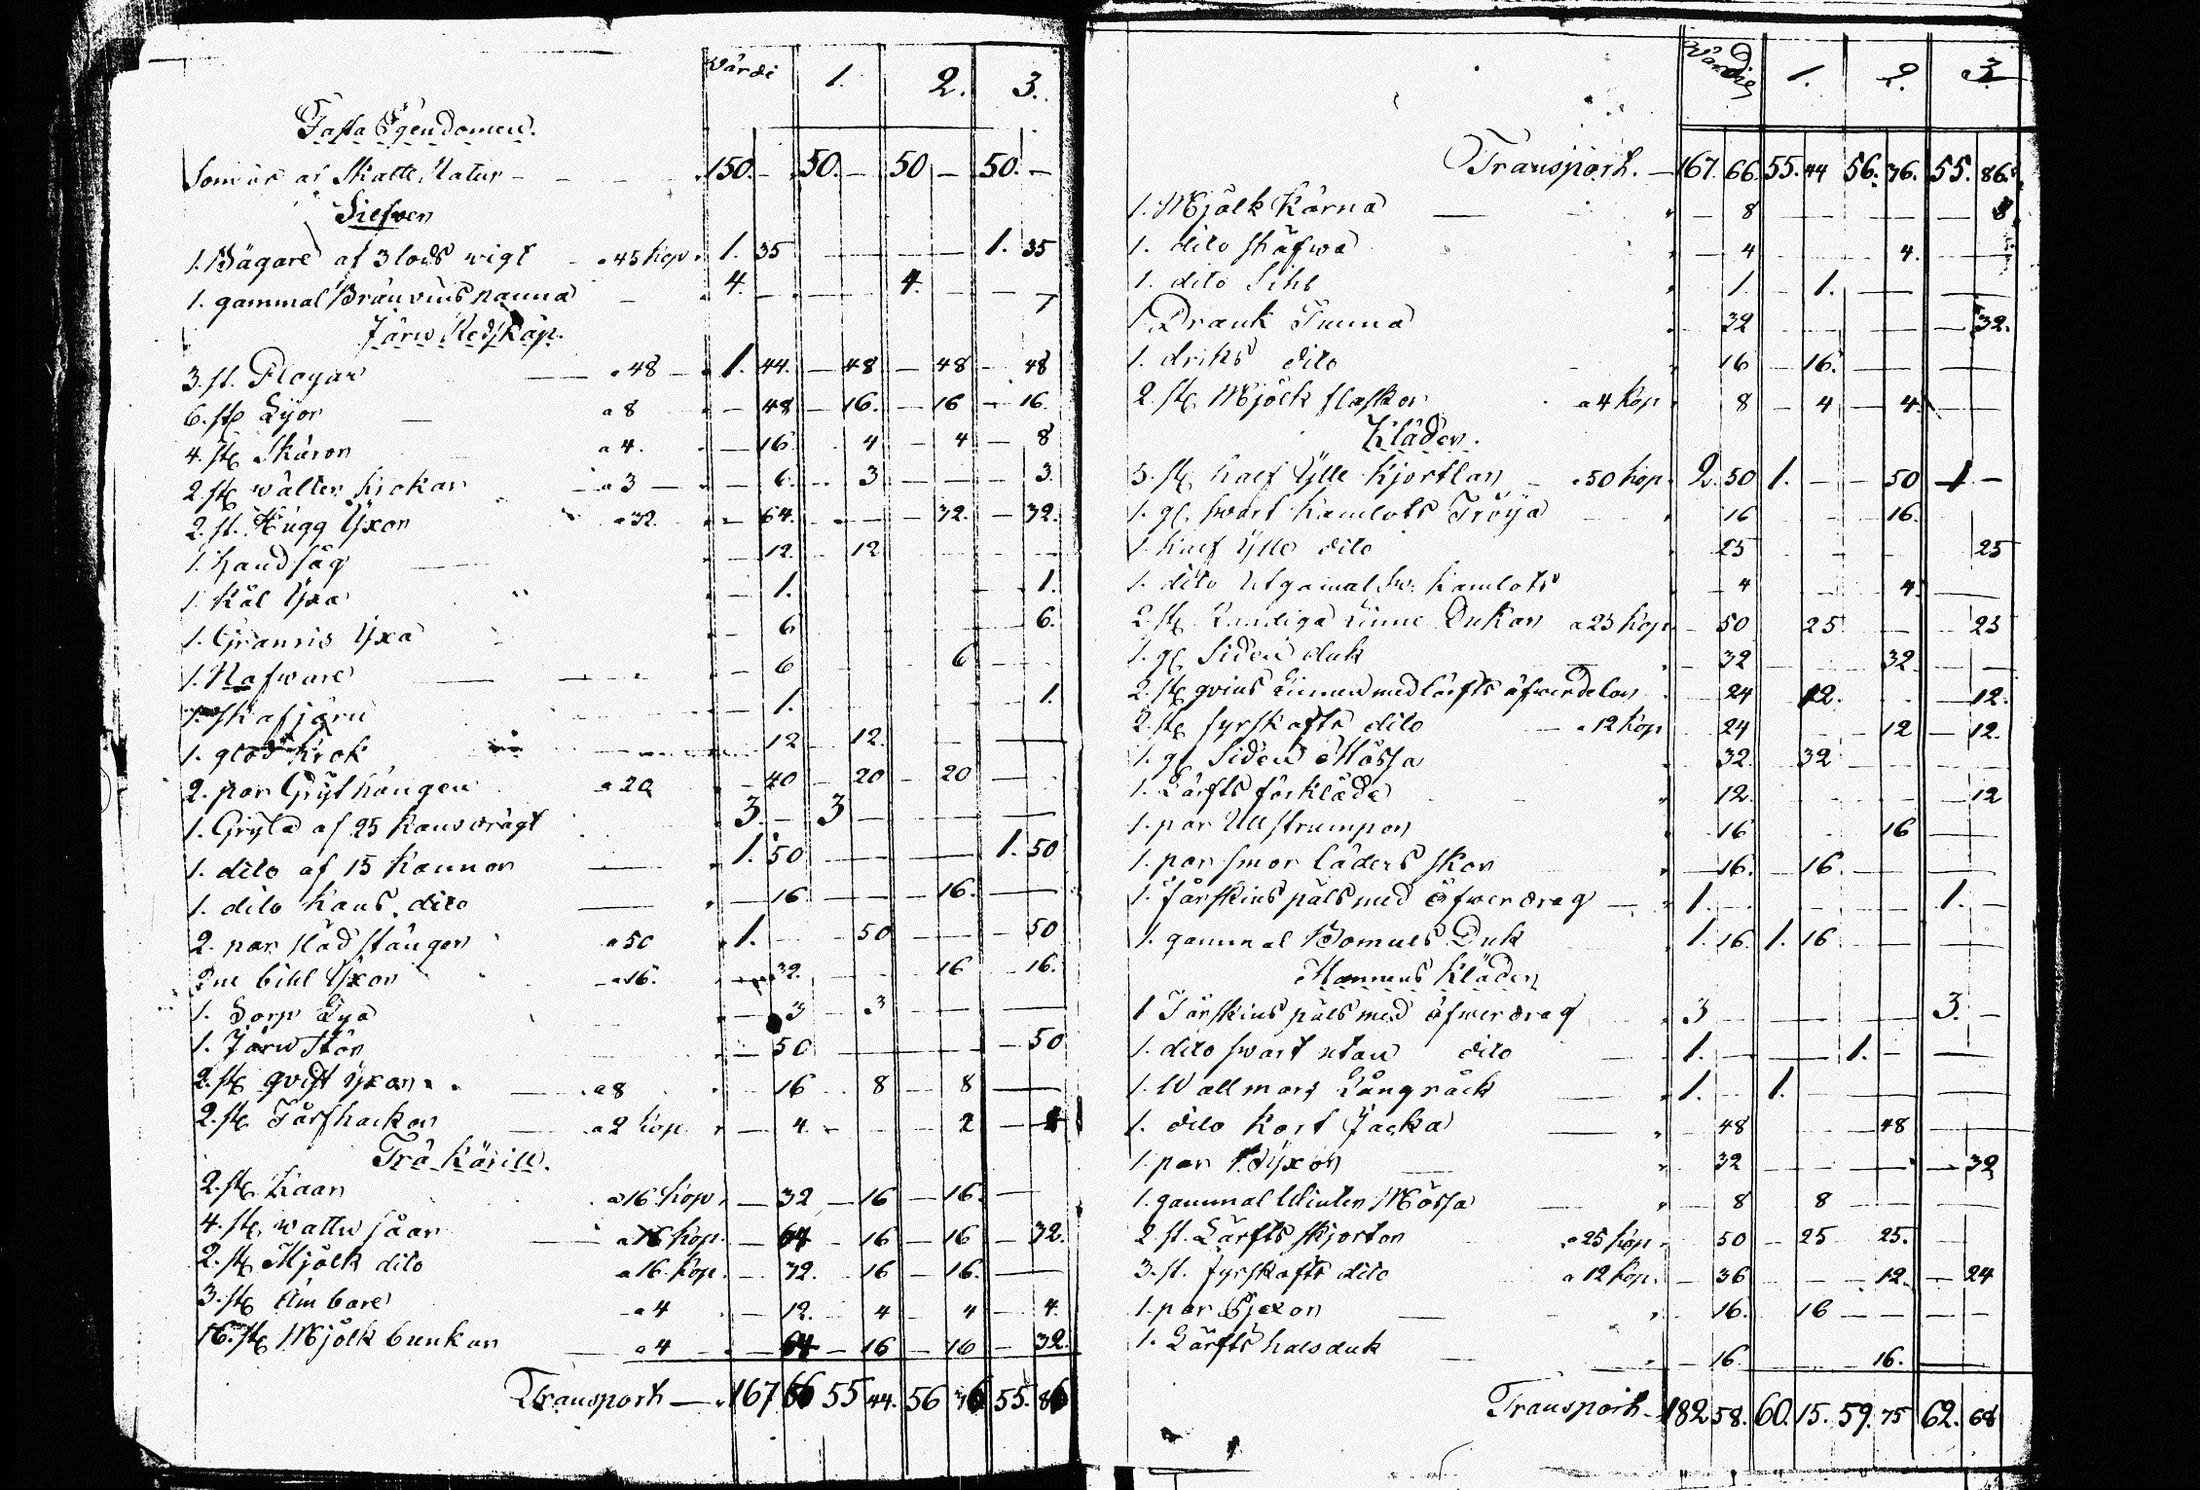 Wärde 1. 2. 3.
Fasta Egendomen.
Som är af Skatte Natur - 150. - 50. - 50 - 50. -
Silfver
1. Bägare af 3 lods wigt a 45 kop 1. 35 1. 35
1. gammal Bränvins panna 4. 4.
Järn Redskap.
3. st. Plogar a 48 1. 44. 48 48 48
6. st Lijor a 8 48 16. 16 16
4. st Skäror a 4. 16 4 4 8
2. st krokar a 3 6. 3 3.
2. st. Hugg Yxor a 32. 64. 32. 32.
1. handsåg 12. 12
1. Kål Yxa 1. 1.
1. Granris Yxa 6 6.
1. Nafware 6 6
1. Skafjärn 1. 1.
1. glöd krok 12 12.
2. par Gryt hängen a 20 40 20 20
1. Gryta af 25 kans drägt 3. 3
1. dito af 15 kannor 1. 50 1. 50
1. dito kans dito 16 16.
2. par släd stänger a 50 1. 50 50
2ne bihl Yxor a 16. 32. 16 16.
1. Torp Lya 3 3
1. Järn Stör 50 50
2. st qvist yxor a 8 16 8 8
2. st Torfhackor a 2 kop 4 2
Trä Käril.
2. st Kaar a 16 kop 32 16 16.
4. st wattu såar a 16 kop. 64 16 16 32.
2. st Mjölk dito a 16. kop. 32. 16 16.
3. st Ämbare a 4 12. 4 4 4.
16. st Mjölk bunkar a 4 64 16 16 32.
Transport 167 66 55 44. 56 36 55. 86
Wärde 1. 2. 3
Transport. 167. 66. 55. 44 56. 36. 55. 86.
1. Mjölk Kärna 8 8
1. dito skäfwa 4 4.
1. dito Sihl 1. 1.
1 Drank Tunna 32 32.
1. driks dito 16 16.
2. st Mjölk flaskor a 4 kop 8 4 4.
Kläder.
5. st half Ylle kjortlar a 50 kop 2. 50 1. 50 1
1. gl. swart kamlots Tröja 16 16.
1. half Ylle dito 25 25
1. dito utgamal sw. kamlots 4 4.
2. st Randiga Linne Dukar a 25 kop 50 25 25
1. gl Siden duk 32 32
2. st qvins Linnen med lärfts öfwerdelar 24 12. 12.
2. st fyrskafts dito a 12 kop 24 12 12.
1. gl Siden Mössa 32. 32
1. Lärfts förkläde 12. 12
1. par Ullstrumpor 16 16
1. par smor läders skor 16. 16.
1. Fårskins päls med öfwerdrag 1. 1.
1. gammal Bomuls Duk 1. 16. 1. 16
Mannens Kläder
1 Fårskins päls med öfwerdrag 3 3.
1. dito swart utan dito 1. 1.
1. Wallmars Långråck 1. 1.
1. dito kort Jacka 48 48
1. par Byxor 32 32
1. gammal Winter Mössa 8 8
2. st. Lärfts skjortor a 25 kop 50 25 25.
3. st. fyrskafts dito a 12 kop. 36 12. 24
1. par 16. 16
1. Lärfts halsduk 16. 16.
Transport 182 58. 60. 15. 59. 75 62. 68